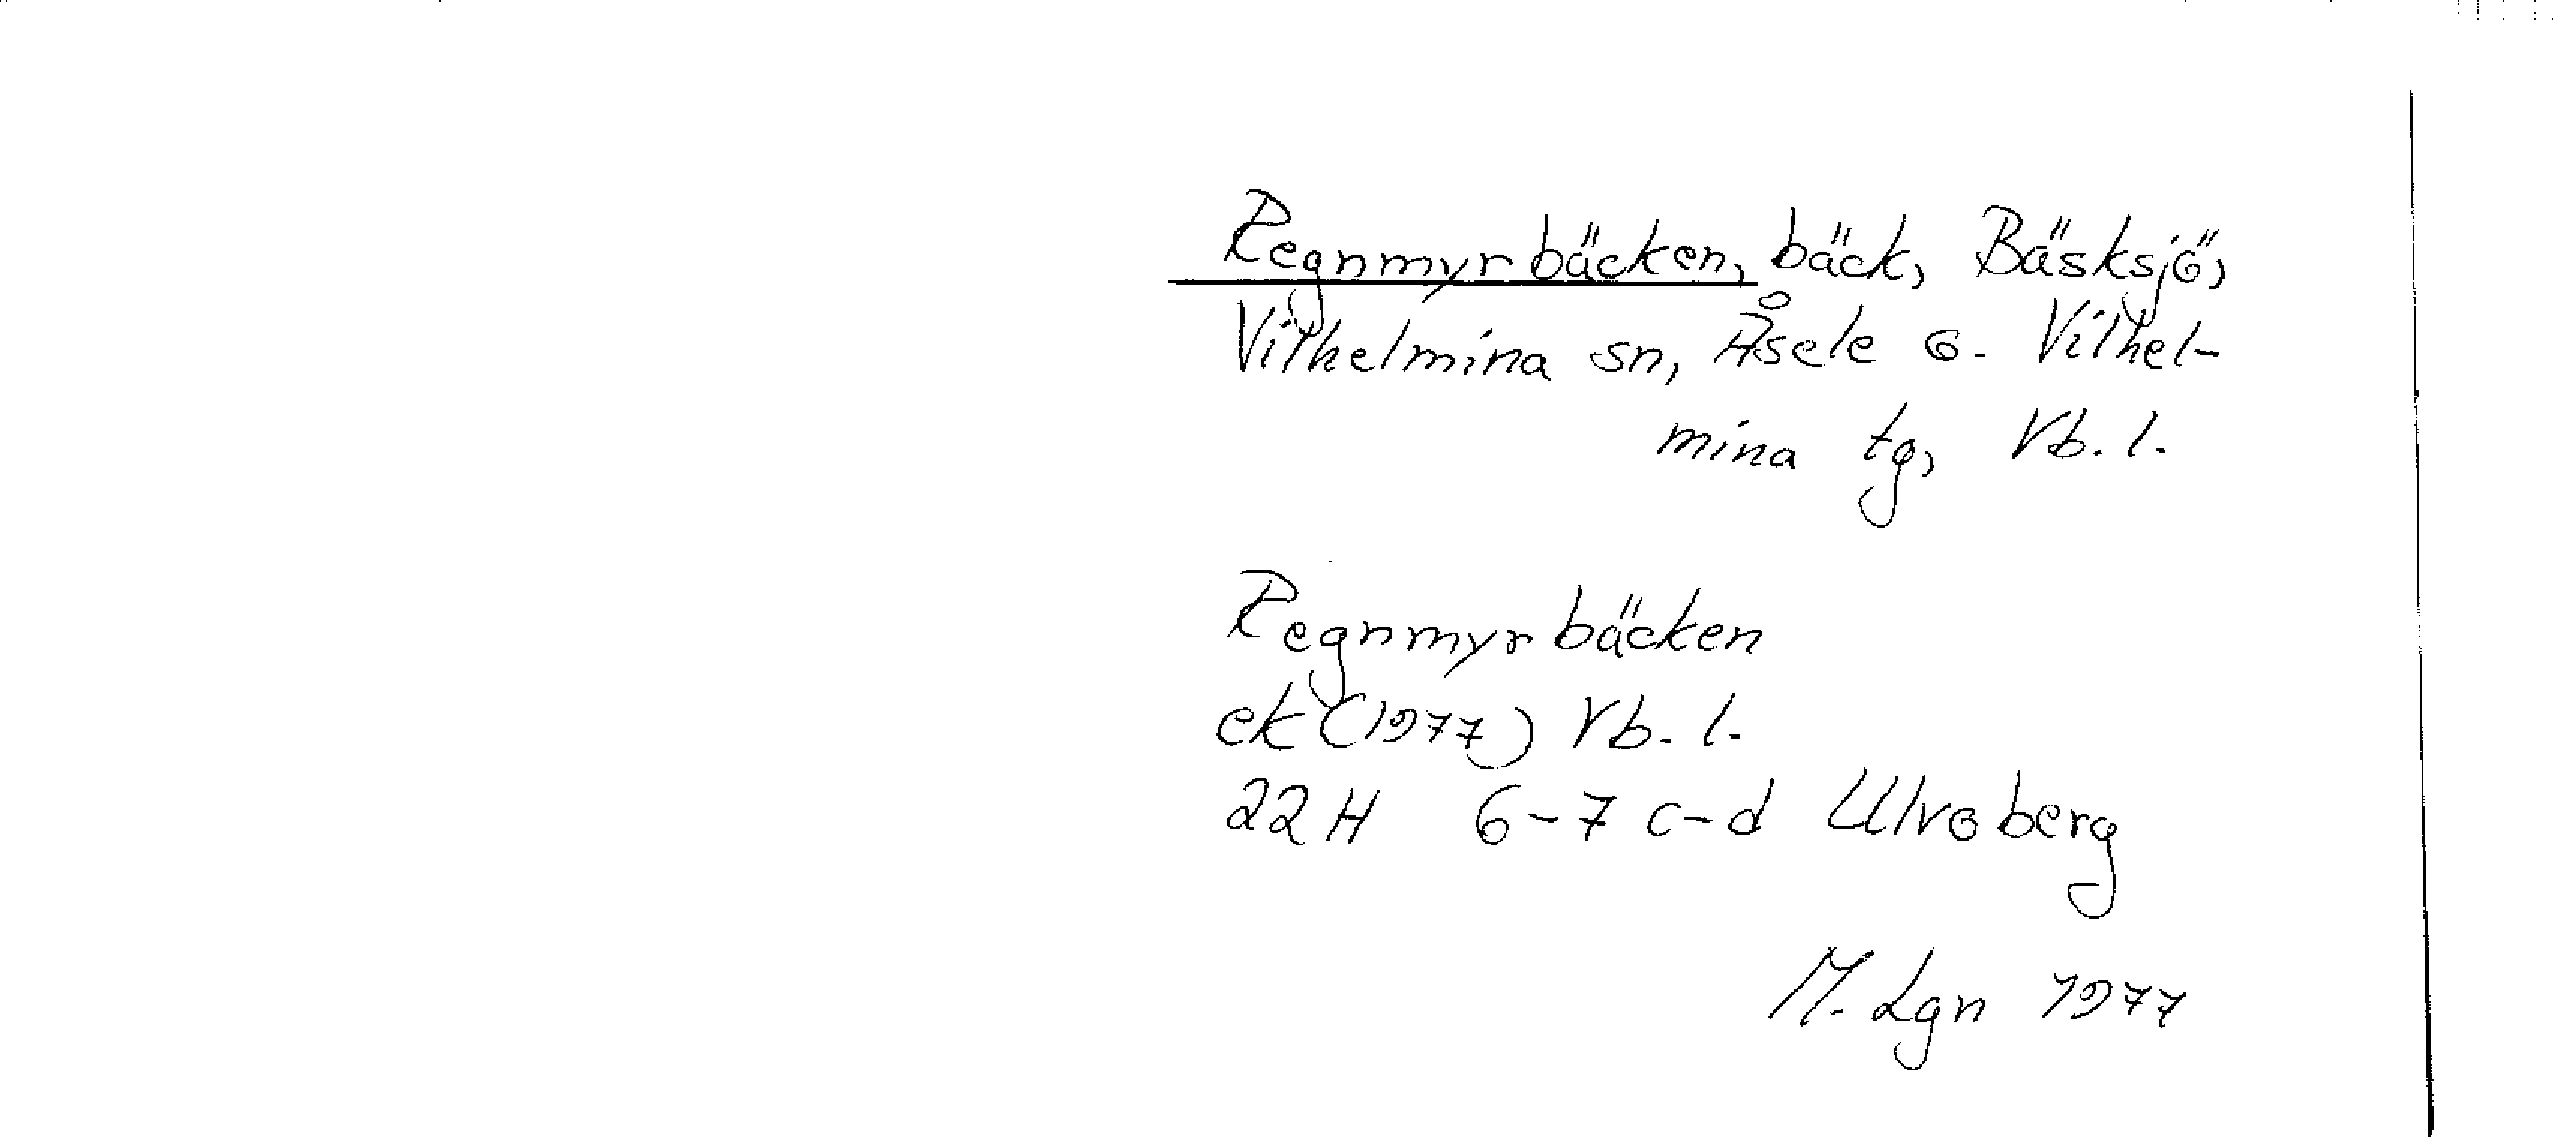 Regnmyrbäcken, bäck, Bäsksjö,
Vilhelmina sn, Åsele o. Vilhel-
mina tg, Vb. l.
Regnmyrbäcken
ek (1977) Vb. l.
22 H 6-7 c-d Ulvoberg
M. Lgn 1977